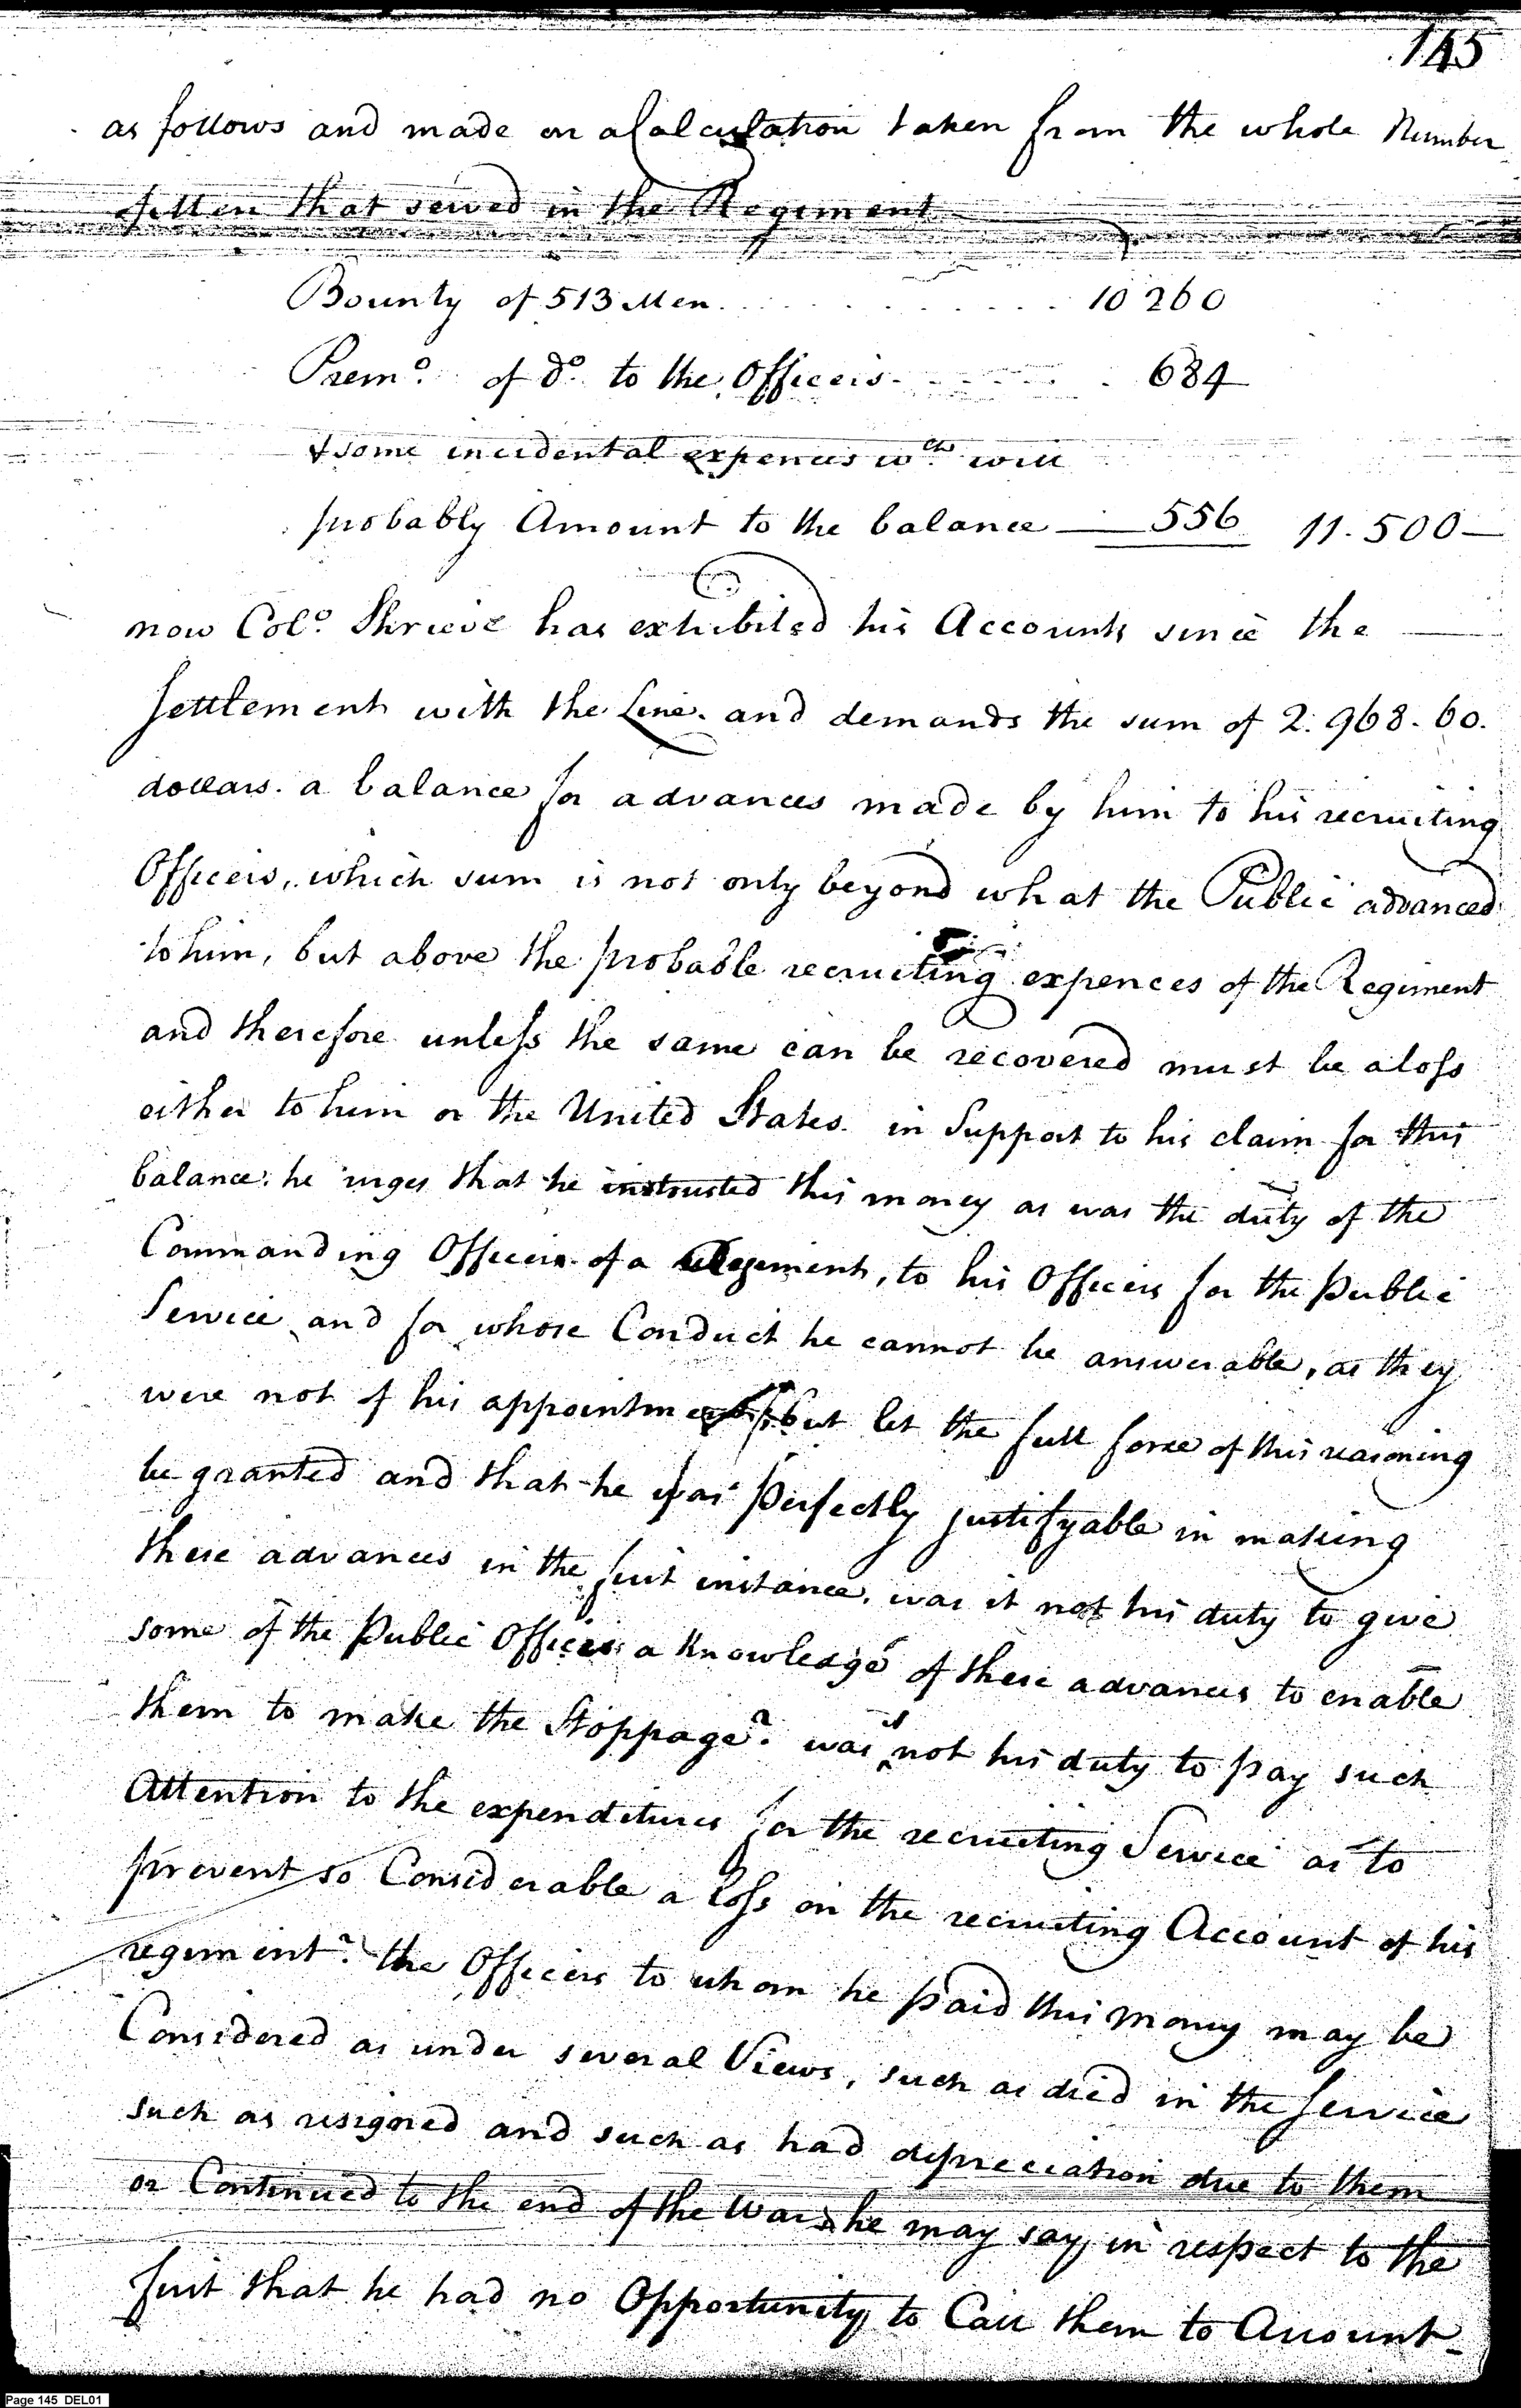 145
as follows and made on a Calculation taken from the whole Number
of Men that served in the Regiment
Bounty of 513 Men. . . . . . . . . . . . . 10 260
Premo. of do. to the Officers. . . . . . . 684
& some incidental expences wch. will
probably Amount to the balance — 556 11.500 —
now Colo. Shrieve has exhibited his Accounts since the —
settlement with the Line. and demands the sum of 2.968.60.
dollars. a balance for advances made by him to his recruiting
Officers, which sum is not only beyond what the Public advanced
to him, but above the probable recruiting expences of the Regiment
and therefore unless the same can be recovered must be a loss
either to him or the United States. in Support to his claim for this
balance: he urges that he instrusted this money as was the duty of the
Commanding Officer of a Regiment, to his Officers for the Public
Service and for whose Conduct he cannot be answerable, as they
were not of his appointment, but let the full force of this reasoning
be granted and that he was Perfectly justifyable in making
these advances in the first instance, was it not his duty to give
some of the Public Officers a Knowledge of these advances to enable
them to make the Stoppage? was it not his duty to pay such
Attention to the expenditures for the recruiting Service as to
prevent so Considerable a loss on the recruiting Account of his
regiment? the Officers to whom he paid this money may be
Considered as under several Views, such as died in the Service
such as resigned and such as had depreciation due to them
or Continued to the end of the War. he may say in respect to the
first that he had no Opportunity to Call them to Account
Page 145 DEL01